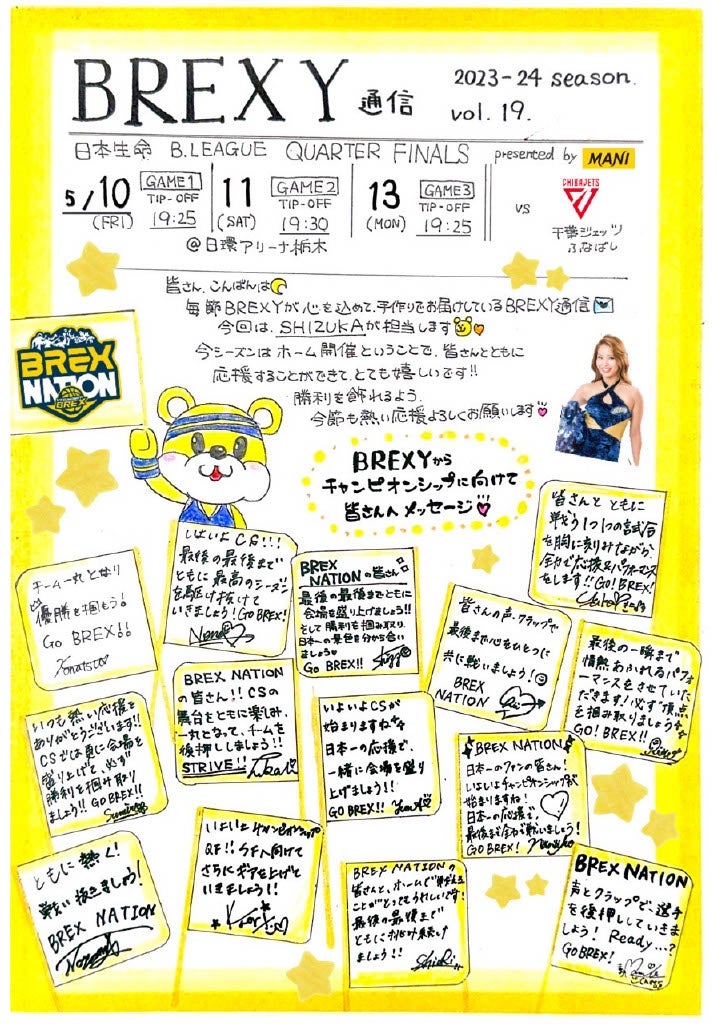 BREXY 通信
2023-24 season.
vol. 19.
日本生命 B.LEAGUE QUARTER FINALS presented by MANI
5/10 (FRI) GAME1 TIP-OFF 19:25
11 (SAT) GAME2 TIP-OFF 19:30
13 (MON) GAME3 TIP-OFF 19:25
@日環アリーナ栃木
vs
CHIBAJETS
千葉ジェッツ
ふなばし
皆さん、こんばんは
毎節BREXYが心を込めて、手作りでお届けしているBREXY通信
今回は、SHIZUKAが担当します
今シーズンは ホーム開催ということで、皆さんとともに
応援することができて、とても嬉しいです!!
勝利を飾れるよう、
今節も熱い応援よろしくお願いします
BREX
NATION
BREX
BREXYから
チャンピオンシップに向けて
皆さんへメッセージ
チーム一丸となり
優勝を掴もう!
Go BREX!!
いよいよCS!!!
最後の最後まで
ともに最高のシーズン
を駆け抜けて
いきましょう!GO BREX!
BREX
NATIONの皆さん
最後の最後までともに
会場を盛り上げましょう!!
そして勝利を掴み取り、
日本一の景色を分かち合い
ましょう
GO BREX!!
皆さんの声、クラップで
最後まで心をひとつに
共に戦いましょう!
BREX
NATION
皆さんとともに
戦う1つ1つの試合
を胸に刻みながら
全力で応援&パフォーマンス
をします!!GO!BREX!
最後の一瞬まで
情熱あふれるパフォ
ーマンスをさせていた
だきます!必ず頂点
を掴み取りましょう
GO! BREX!!
いつも熱い応援を
ありがとうございます!!
CSでは更に会場を
盛り上げて、必ず
勝利を掴み取り
ましょう!! GO BREX!
BREX NATION
の皆さん!! CSの
舞台をともに楽しみ、
一丸となって、チームを
後押ししましょう!!
STRIVE!!
いよいよCSが
始まりますね
日本一の応援で、
一緒に会場を盛り
上げましょう!
GO BREX!!
BREX NATION
日本一のファンの皆さん!
いよいよチャンピオンシップが
始まりますね!
日本一の応援で、
最後まで全力で戦いましょう!
GO BREX!
ともに熱く!
戦い抜きましょう!
BREX NATION
いよいよチャンピオンシップ
QF!! SFへ向けて
さらにギアを上げて
いきましょう!!
BREX NATIONの
皆さんと、ホームで
ことがとってもうれしいです!
最後の最後まで
ともに
ましょう!!
Shiori
BREX NATION
声とクラップで、選手
を後押ししていきま
しょう! Ready...?
GO BREX!